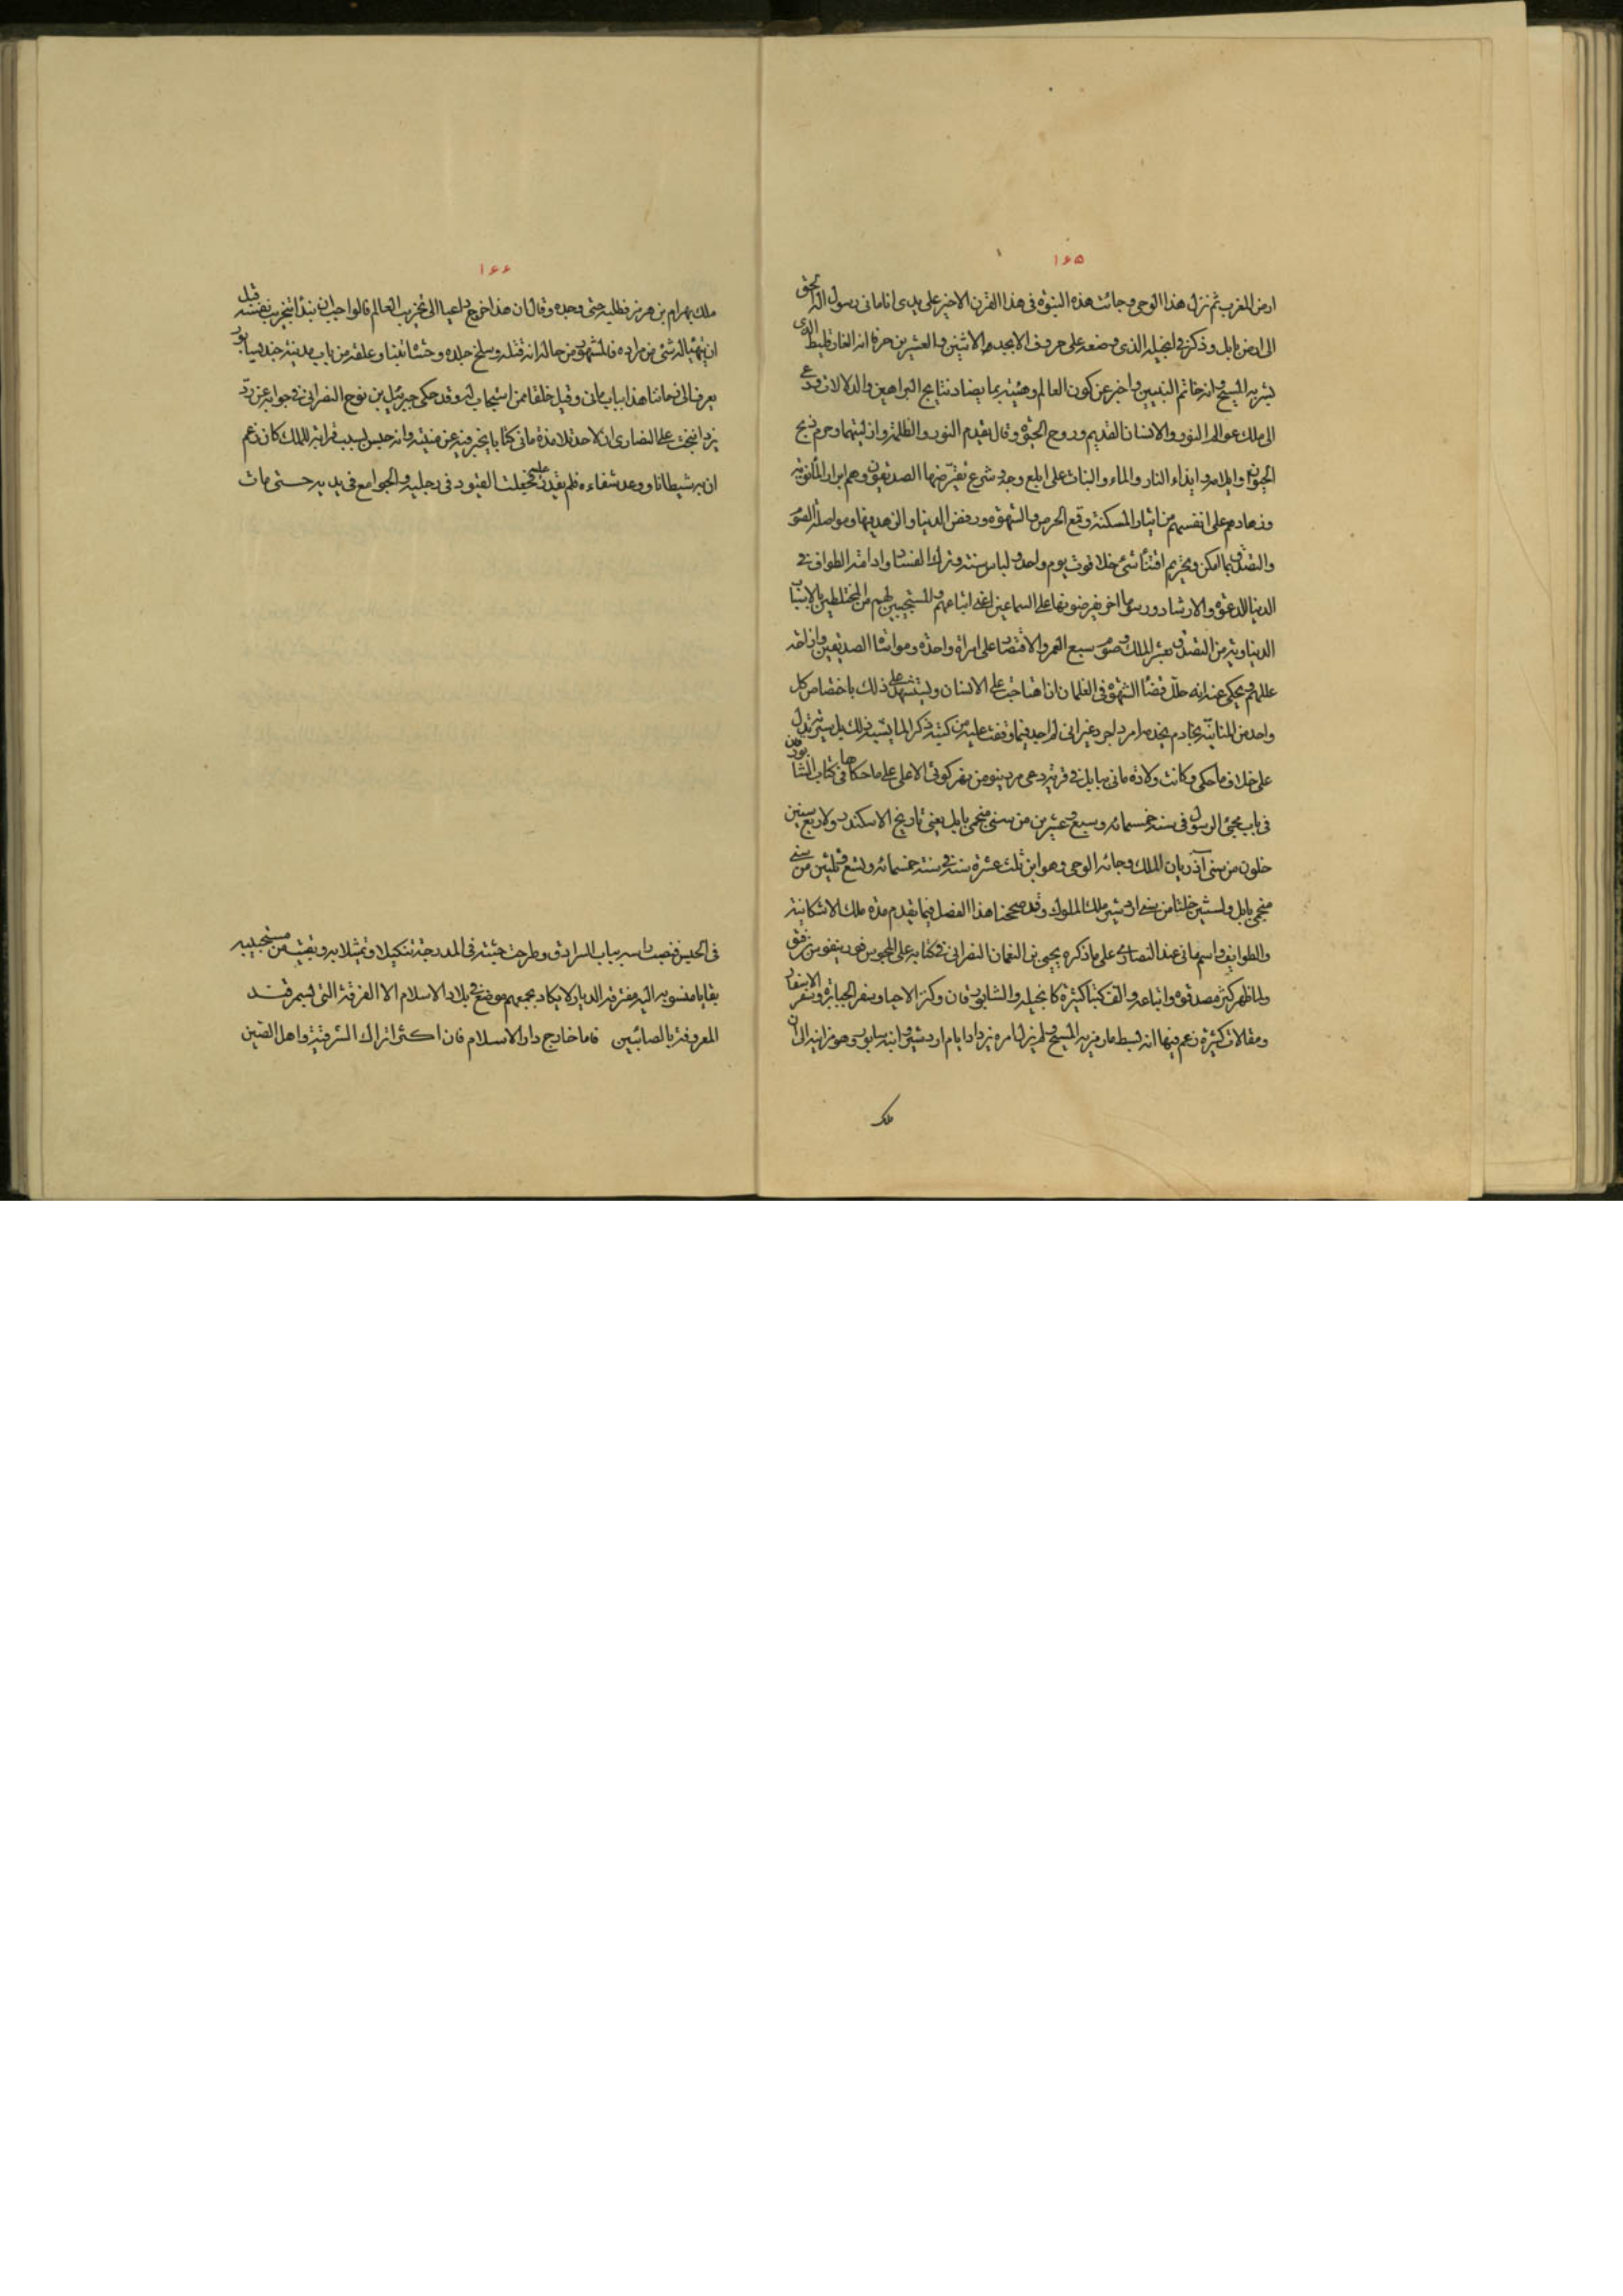 ۱۶۵
ارض المغرب ثم نزل هذا الوحی وجائت هذه النبوّة فی هذا القرن الاخیر علی یدی انا مانی رسول اله الحق
الی ارض بابل وذکر فی انجیله الذی وضعه علی حروف الابجد الاثنین والعشرین حرفا انه الفارقلیط الذی
بشر به المسیح وانه خاتم النبیین واخبر عن کون العالم وهیئته بما یضاد نتایج البراهین والدلالات ودعی
الی ملک عوالم النور والانسان القدیم وروح الحیوة وقال بقدم النور والظلمة وازلیتهما وحرم ذبح
الحیوان وایلامه وایذاء النار والماء والنبات علی ابلغ وجه وشرع نفترضها الصدیقون وهم ابرار المانویة
وزهادهم علی انفسهم من ایثار المسکنة وقمع الحرص والشهوة ورفض الدنیا والزهد فیها ومواصلة الصوم
والتصدّق بما امکن وتحریم اقتناء شئ خلا قوت یوم واحد ولباس سنة وترک الفساد وادامة الطواف فی
الدنیا للدعوة والارشاد ورسوما اخر یفرضونها علی السماعین اعنی اتباعهم والمستجیبین لهم من المختلطین بالاسباب
الدنیاویة من التصدق بعشر الملک وصوم سبع العمر والاقتصار علی امراة واحدة ومواساة الصدیقین وازاحة
عللهم ویحکی عنه انه حلّل قضاء الشهوة فی الغلمان اذا هاجت علی الانسان ویستشهد علی ذلک باختصاص کل
واحد من المنانیّه بخادم یخدمه امرد اجرد غیر انی لم اجد فیما وقفت علیه من کتبه ذکرا لما یشبه ذلک بل سیرته تدل
علی خلاف ما حکی وکانت ولادة مانی ببابل فی قریة تدعی مردینو من نهر کوثی الاعلی علی ما حکاها فی کتاب الشابورقان
فی باب مجئ الرسول فی سنة خمسمائه وسبع وعشرین من سنی منجمی بابل یعنی تاریخ الاسکندر ولاربع سنین
خلون من سنی آذربان الملک وجائه الوحی وهو ابن ثلث عشرة سنة فی سنة خمسمائه وتسع وثلثین من سنی
منجمی بابل ولسنتین خلتا من سنی اردشیر ملک الملوک وقد صححنا هذا الفصل فیما تقدم مدة ملک الاشکانیة
والطوایف واسم مانی عند النصاری علی ما ذکره یحیی بن النعمان النصرانی فی کتابه علی المجوس قوربیقوس بن فتق
ولما ظهر کثر مصدقوه واتباعه والف کتبا کثیرة کانجیله والشابورقان وکنز الاحیاء وسفر الجبابرة وسفر الاسفار
ومقالات کثیرة زعم فیها انه بسط ما رمز به المسیح ولم یزل امره یزداد ایام اردشیر وابنه سابور وهرمز ابنه الی ان
ملک
۱۶۶
ملک بهرام بن هرمز فطلبه حتی وجده وقال ان هذا خرج داعیا الی تخریب العالم فالواجب ان نبدأ بتخریب نفسه قبل
ان یتهیا له شئ من مراده فالمشهور من حاله انه قتله وسلخ جلده وحشاه تبنا وعلقه من باب مدینة جندیسابور
یعرف الی زماننا هذا بباب مانی وقتل خلقا ممن استجاب له وقد حکی جبرئیل بن نوح النصرانی فی جوابه عن ردّ
یزدانبخت علی النصاری ان لاحد تلامذة مانی کتابا یخبر فیه عن منیّته وانه حبس بسبب قرابة للملک کان زعم
ان به شیطانا ووعد شفاءه فلم یقدر علیه فجعلت القیود فی رجلیه والجوامع فی یدیه حتی مات
فی الحبس ونصبت راسه بباب السرادق وطرحت جثته فی المدرجة تنکیلا وتمثیلا به وبقیت من مستجیبیه
بقایا منسوبة الیه مفترقة الدیار لا یکاد یجمعهم موضع فی بلاد الاسلام الا الفرقة التی بسمرقند
المعروفة بالصابئین فاما خارج دار الاسلام فان اکثر اتراک الشرقیة واهل الصین